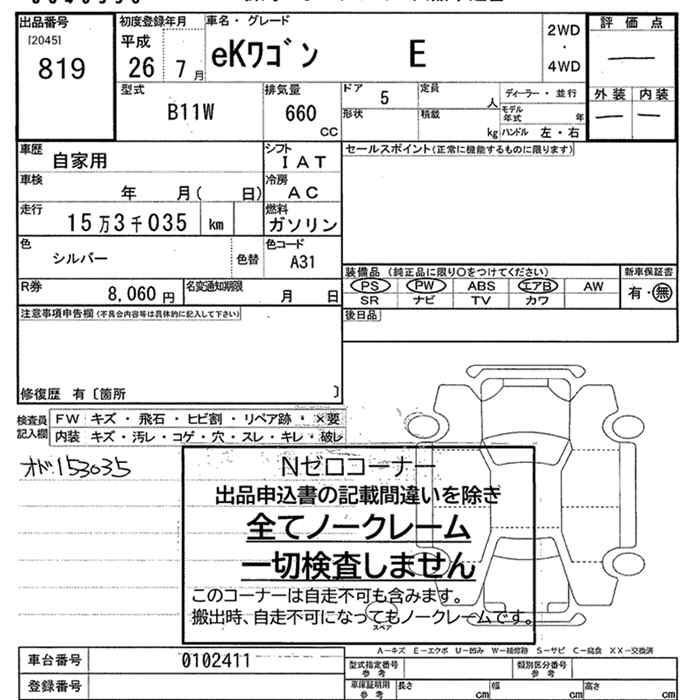 出品番号
[2045]
819
初度登録年月
平成
26 7月
車名・グレード
eKワゴン E
2WD
・
4WD
評価点
—
外装 内装
— —
型式
B11W
排気量
660
CC
ドア
5
定員
人
ディーラー・並行
形状
積載
kg
モデル年式
年
ハンドル 左・右
車歴
自家用
シフト
IAT
セールスポイント(正常に機能するものに限ります)
車検
年 月( 日)
冷房
AC
走行
15万3千035 km
燃料
ガソリン
色
シルバー
色替
色コード
A31
装備品(純正品に限り○をつけてください)
新車保証書
PS PW ABS エアB AW
SR ナビ TV カワ
有・無
R券
8,060円
名変通知期限
月 日
後日品
注意事項申告欄(不具合内容等は具体的に記入して下さい)
修復歴 有〔箇所 〕
検査員記入欄
FW キズ・飛石・ヒビ割・リペア跡・×要
内装 キズ・汚レ・コゲ・穴・スレ・キレ・破レ
オド:153035
Nゼロコーナー
出品申込書の記載間違いを除き
全てノークレーム
一切検査しません
このコーナーは自走不可も含みます。
搬出時、自走不可になってもノークレームです。
スペア
A—キズ E—エクボ U—凹み W—補修跡 S—サビ C—腐食 XX—交換済
車台番号 0102411
登録番号
型式指定番号
参考
類別区分番号
参考
車庫証明用
参考
長さ cm 幅 cm 高さ cm